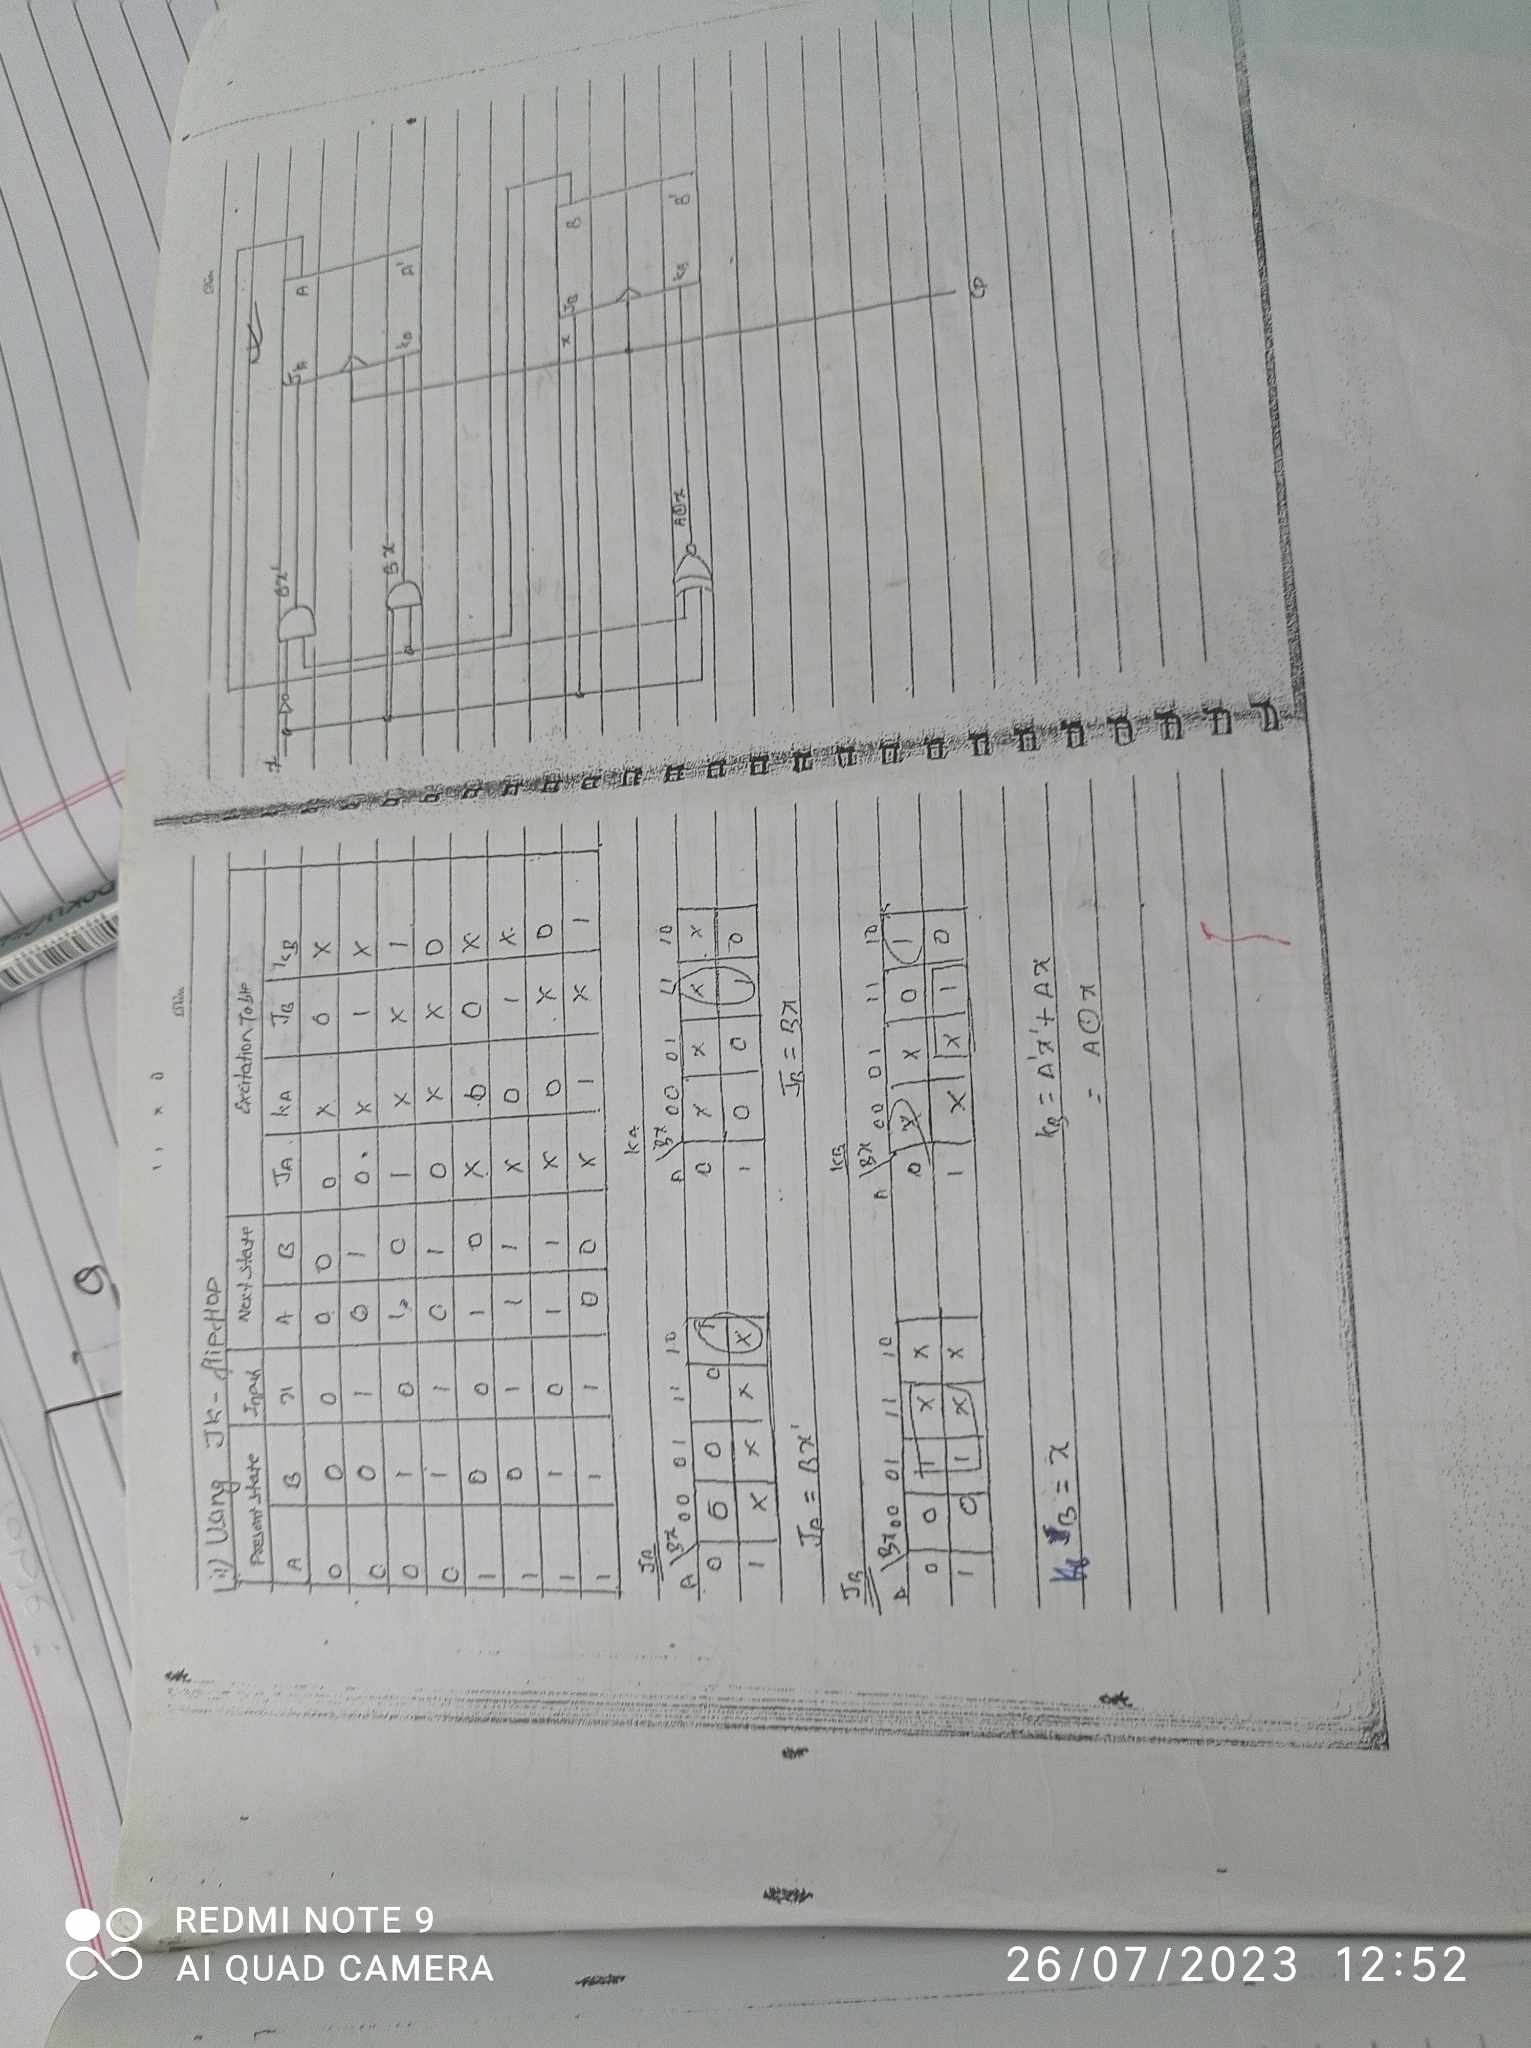 ii) Using Jk - flipflop
Present state Input Next state Excitation Table
A B x A B JA kA JB kB
0 0 0 0 0 0 X 0 X
0 0 1 0 1 0 X 1 X
0 1 0 1 0 1 X X 1
0 1 1 0 1 0 X X 0
1 0 0 1 0 X 0 0 X
1 0 1 1 1 X 0 1 X
1 1 0 1 1 X 0 X 0
1 1 1 0 0 X 1 X 1
JA
A Bx 00 01 11 10
0 0 0 0 1
1 X X X X
JA = Bx'
kA
A Bx 00 01 11 10
0 X X X X
1 0 0 1 0
JA = Bx
JB
A Bx 00 01 11 10
0 0 1 X X
1 0 1 X X
JB = x
kB
A Bx 00 01 11 10
0 X X 0 1
1 X X 1 0
kB = A'x' + Ax
= A⊙x
x
Bx'
JA A
kA A'
Bx
x JB B
kB B'
A⊙x
CP
REDMI NOTE 9
AI QUAD CAMERA
26/07/2023 12:52